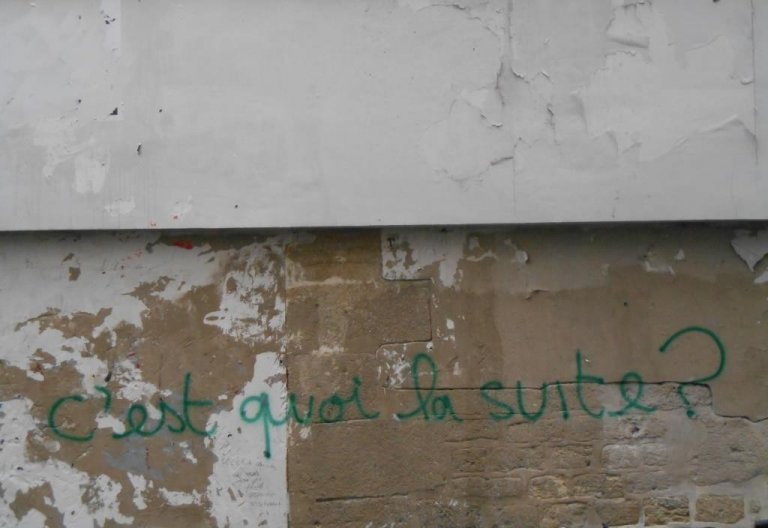 c'est quoi la suite?